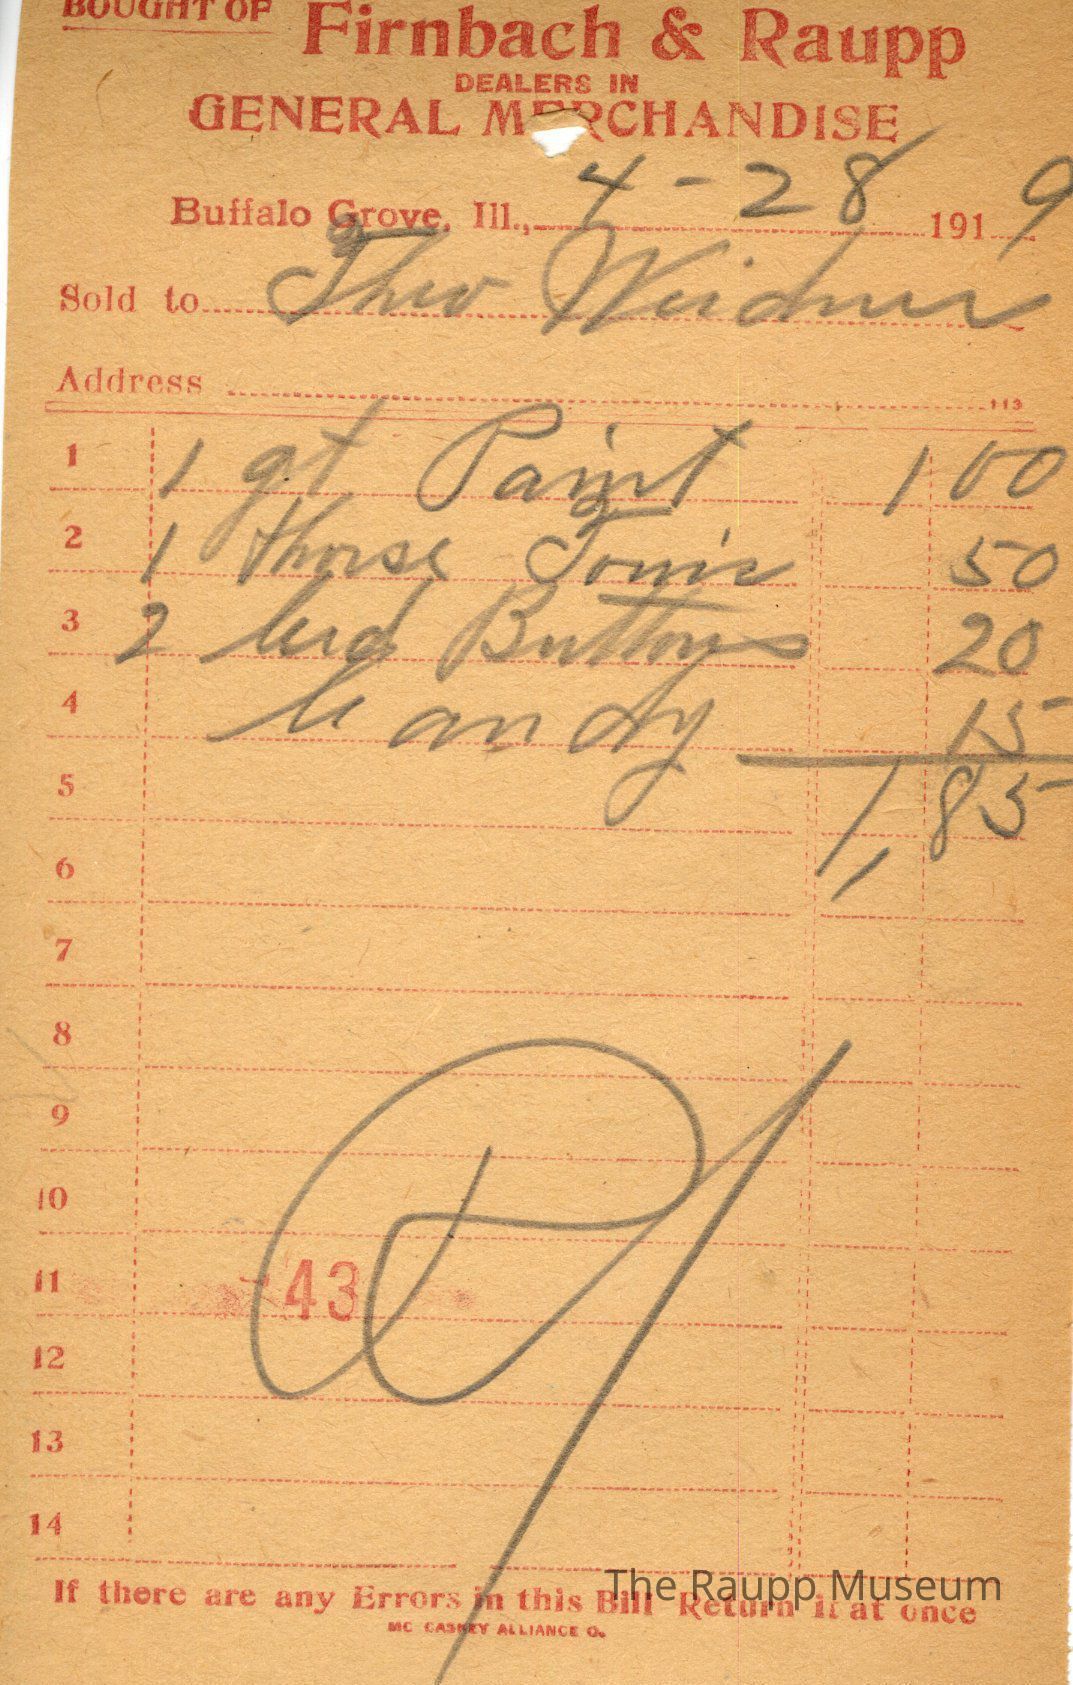 BOUGHT OF Firnbach & Raupp
DEALERS IN
GENERAL MERCHANDISE
Buffalo Grove, Ill., 4-28 1919
Sold to Theo Weidner
Address
113
1 1 qt Paint 1 00
2 1 Horse Tonic 50
3 2 Crd Buttons 20
4 Candy 15
5 1,85
6
7
8
9
10
11 43
12
13
14
If there are any Errors in this Bill Return it at once
MC CASKEY ALLIANCE O.
The Raupp Museum